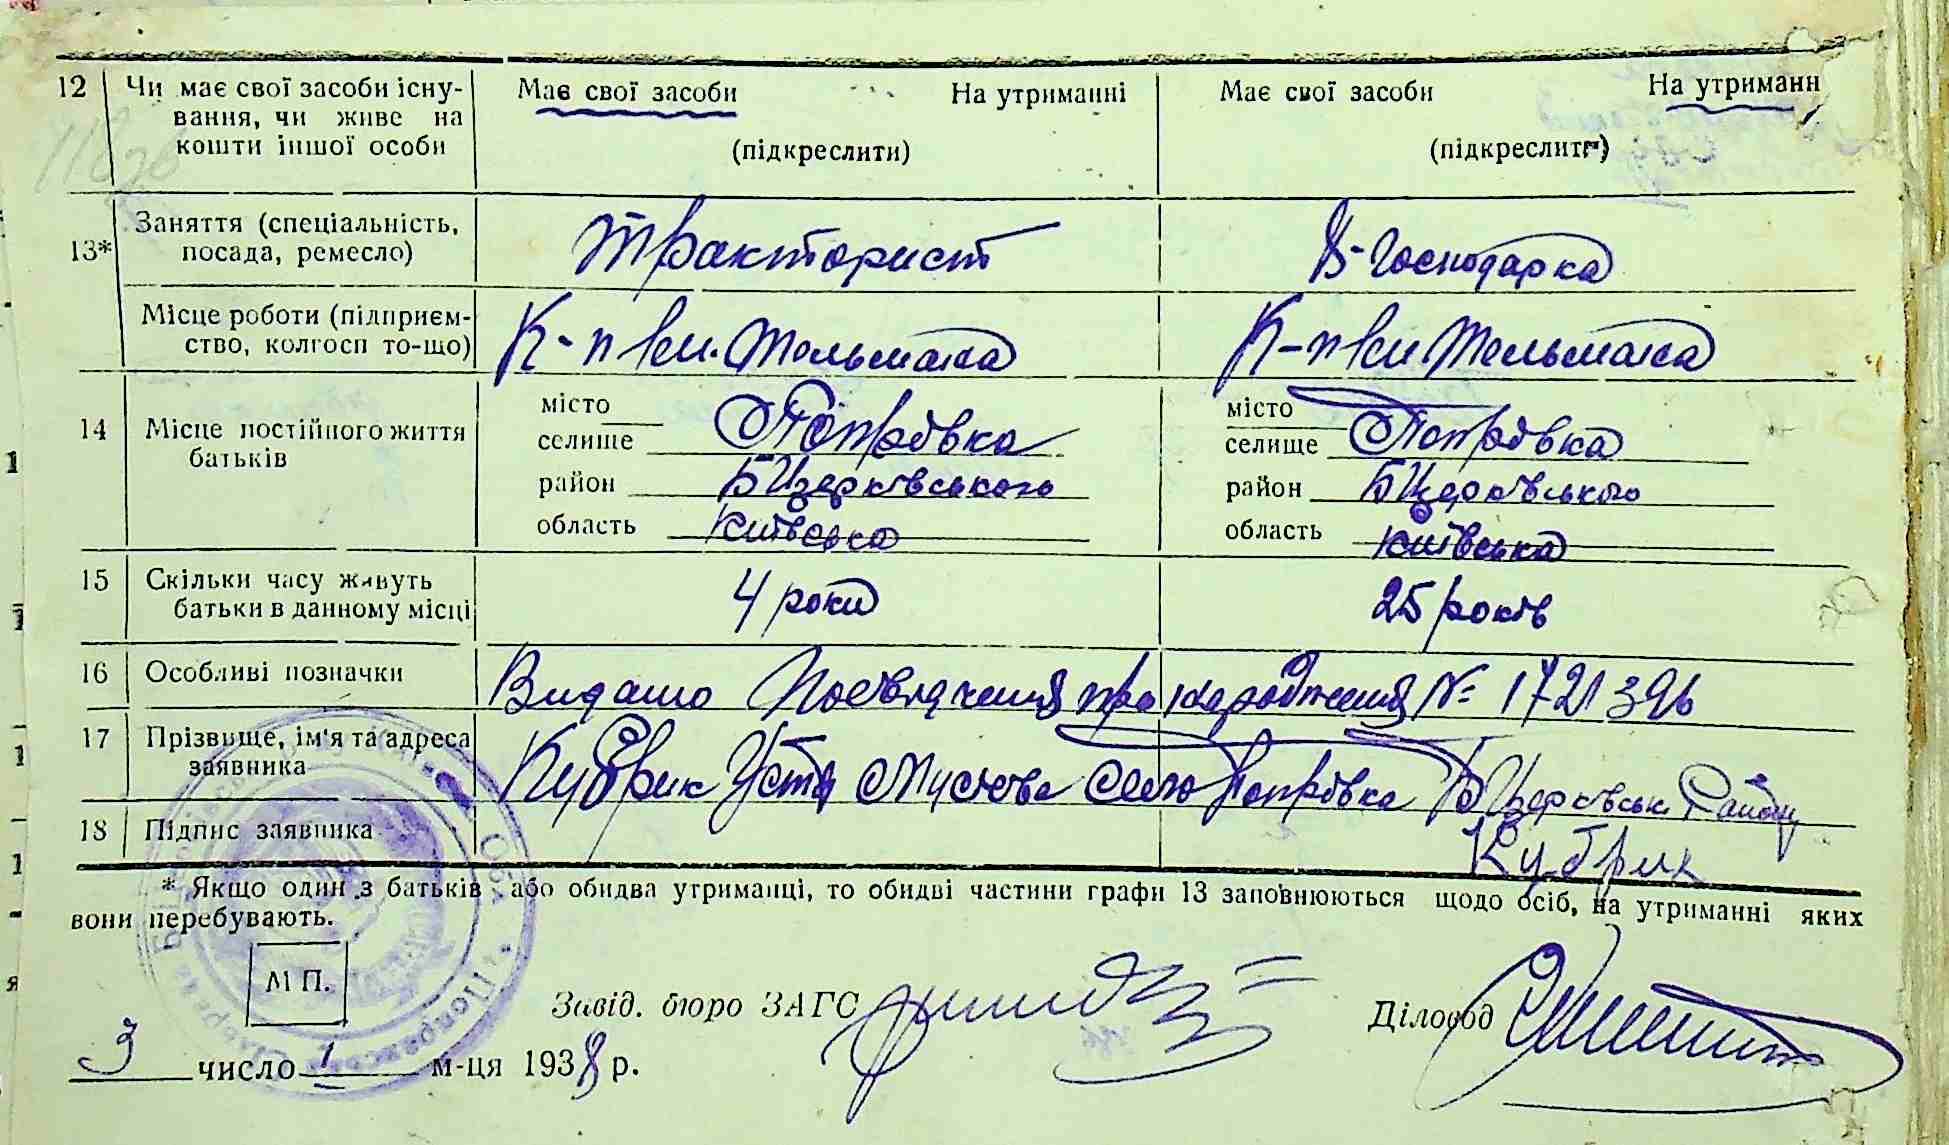 12 Чи має свої засоби існу- Має свої засоби На утриманні Має свої засоби На утриманн
вання, чи живе на
кошти іншої особи (підкреслити) (підкреслити)
13* Заняття (спеціальність, Тракторист Д-Господарка
посада, ремесло)
Місце роботи (підприєм- К-п ім. Тельмана К-п ім Тельмана
ство, колгосп то-що)
14 Місце постійного життя місто місто
батьків селище Попрівка селище Попрівка
район БЦерківського район БЦерківського
область Київська область Київська
15 Скільки часу живуть 4 роки 25 років
батьки в данному місці
16 Особливі позначки Видано Посвідчення про народження № 1721396
17 Прізвище, ім'я та адреса Кубрик Устя Мусієва Село Попрівка БЦерківськ Району
заявника
18 Підпис заявника Кубрик
* Якщо один з батьків або обидва утриманці, то обидві частини графи 13 заповнюються щодо осіб, на утриманні яких
вони перебувають.
М П.
Завід. бюро ЗАГС Діловод
3 число 1 м-ця 1938 р.